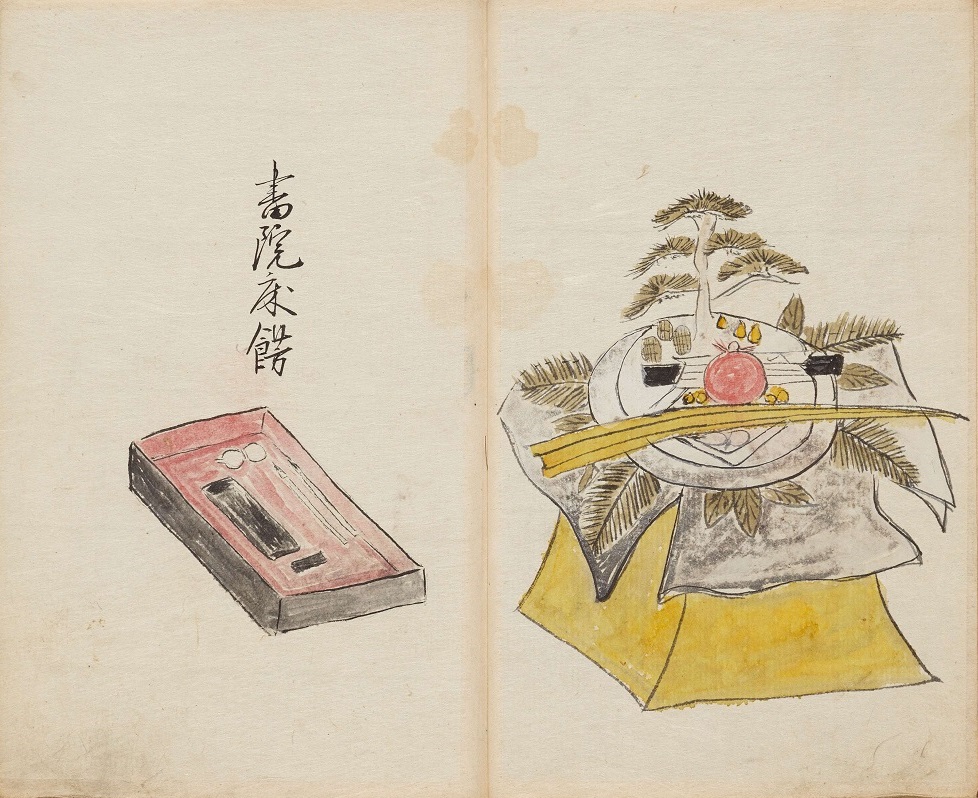 書院床餝